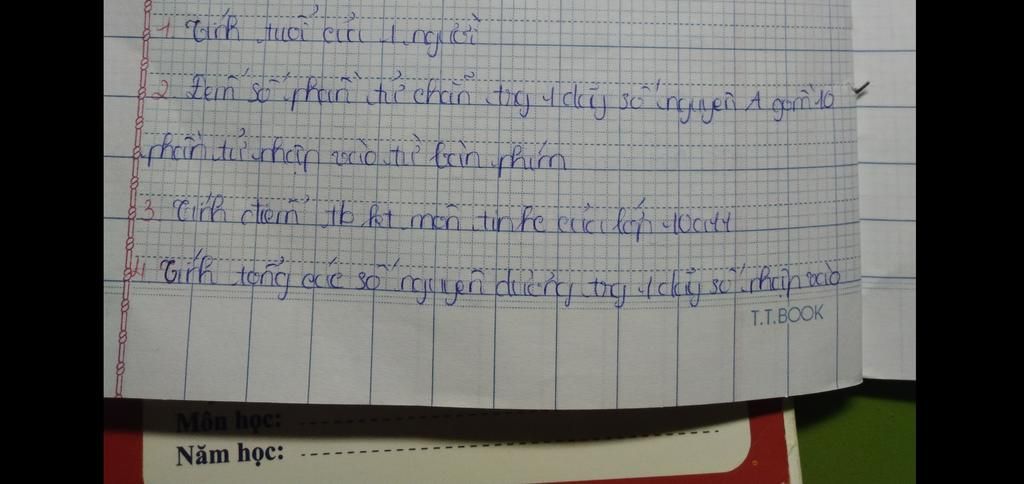 1 Tính tuổi của 1 người
2 Đếm số phần tử chẵn trg 1 dãy số nguyên A gồm 10
phần tử nhập vào từ bàn phím
3 Tính điểm tb kt môn tin hk của lớp 10a11
4 Tính tổng các số nguyên dương trg 1 dãy số nhập vào
T.T.BOOK
Môn học:
Năm học: